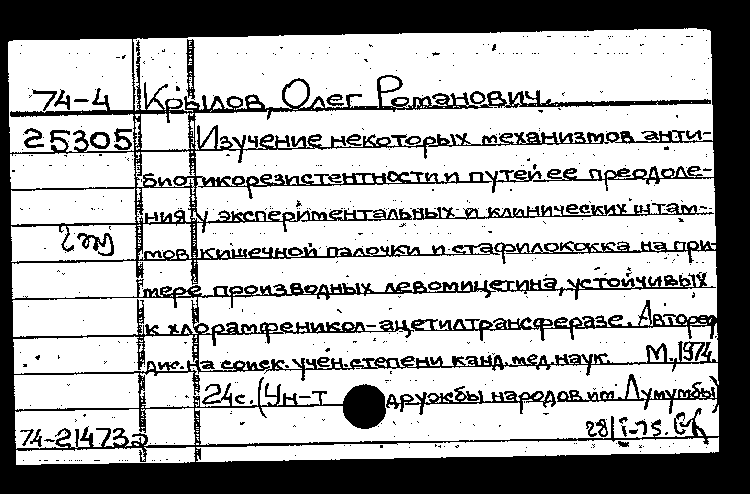 74-4 Крылов, Олег Романович.
25305 Изучение некоторых механизмов анти-
биотикорезистентности и путей ее преодоле-
ния у экспериментальных и клинических штам-
мов кишечной палочки и стафилококка на при-
мере производных левомицетина, устойчивых
к хлорамфеникол-ацетилтрансферазе. Автореф
дис. на соиск. учен. степени канд. мед. наук. М., 1974.
24с. (Ун-т дружбы народов им. Лумумбы)
74-21473 28/I-75.